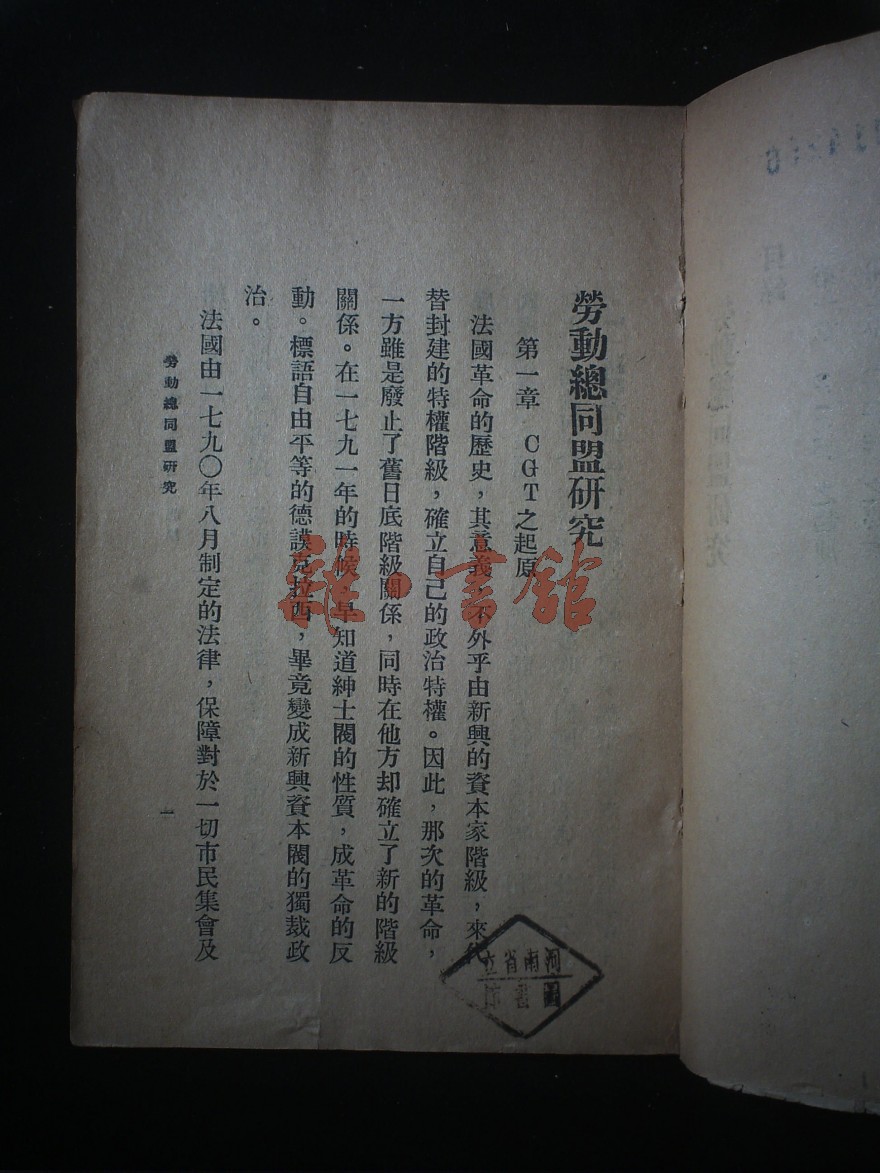 勞動總同盟研究
第一章　CGT之起原
法國革命的歷史，其意義，不外乎由新興的資本家階級，來代
替封建的特權階級，確立自己的政治特權。因此，那次的革命，
一方雖是廢止了舊日底階級關係，同時在他方却確立了新的階級
關係。在一七九一年的時候，早知道紳士閥的性質，成革命的反
動。標語自由平等的德謨克拉西，畢竟變成新興資本閥的獨裁政
治。
法國由一七九〇年八月制定的法律，保障對於一切市民集會及
勞動總同盟研究
一
雜·書館
河南省立
圖書館